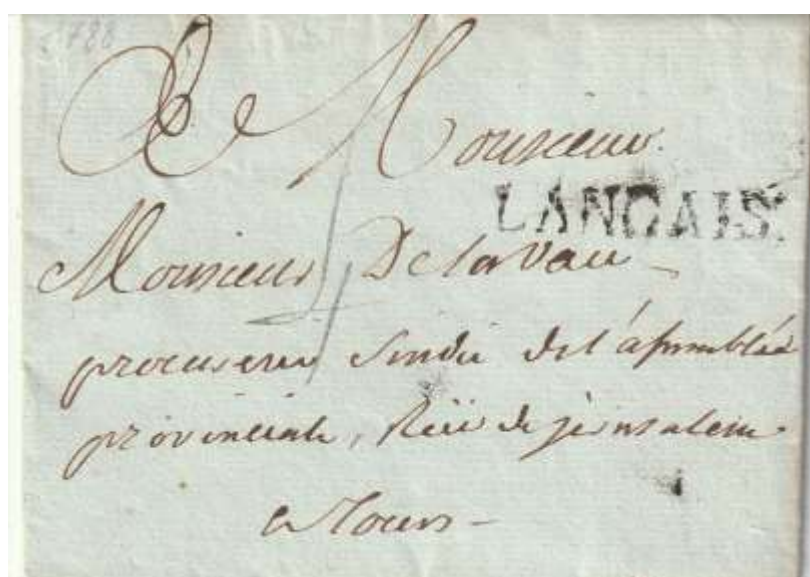 1788
A Monsieur
LANGAIS.
Monsieur Delavau
procureur sindic de l'assemblée
provinciale, Rüe de jerusalem
a Tours